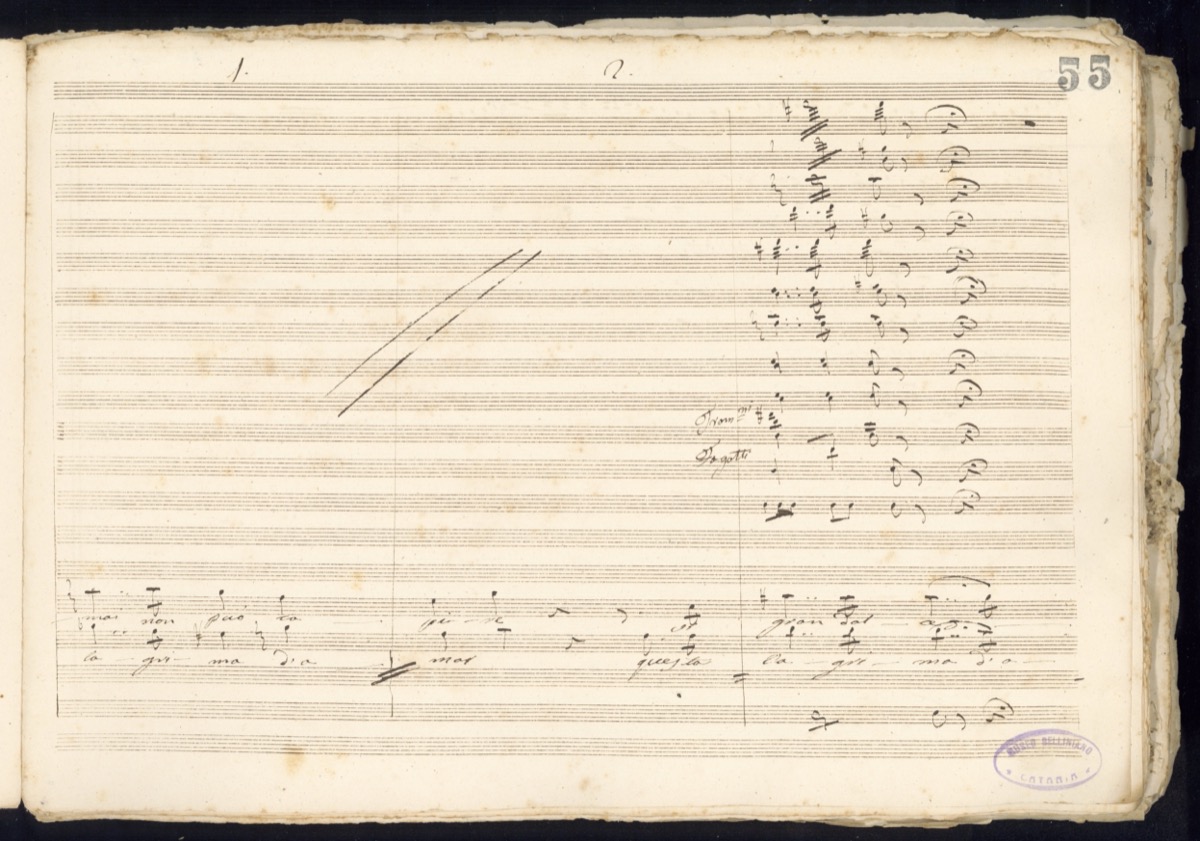 1. 2. 55
Fagotti
mai non può
gran
la gri ma d'a mor questa la gri ma d'a
MUSEO BELLINIANO
CATANIA